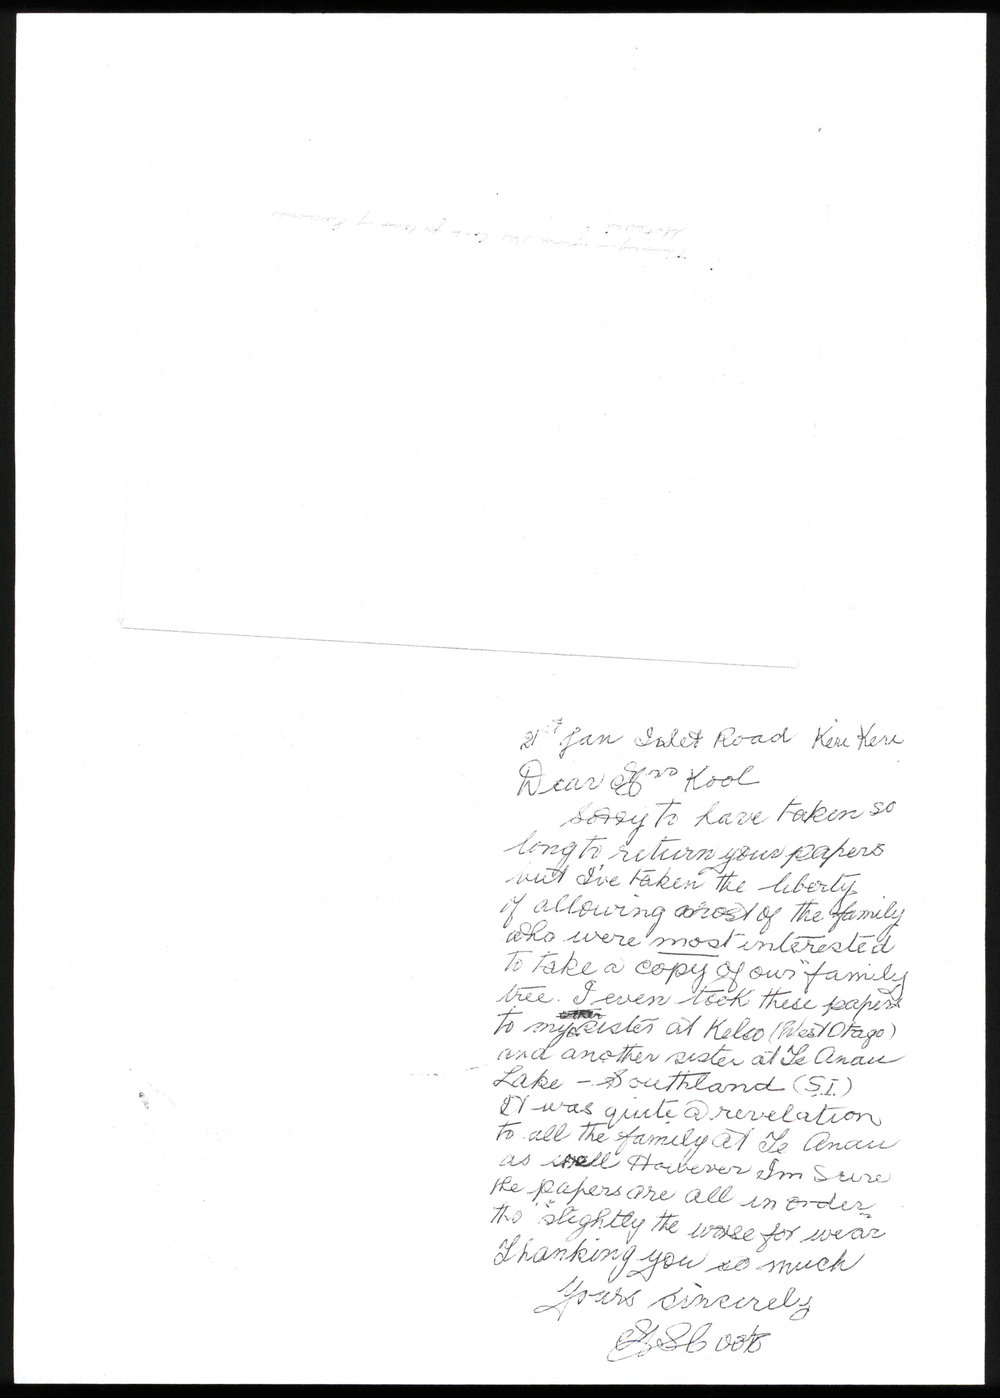 21st Jan Inlet Road Keri Keri
Dear Mrs Kool
Sorry to have taken so
long to return your papers
but I've taken the liberty
of allowing most of the family
who were most interested
to take a copy of our "family
tree. I even took these papers
to my sister at Kelso (West Otago)
and another sister at Te Anau
Lake - Southland (S.I.)
It was quite a revelation
to all the family at Te Anau
as well However I'm sure
the papers are all in order
tho "slightly the worse for wear"
Thanking you so much
Yours sincerely
Cook